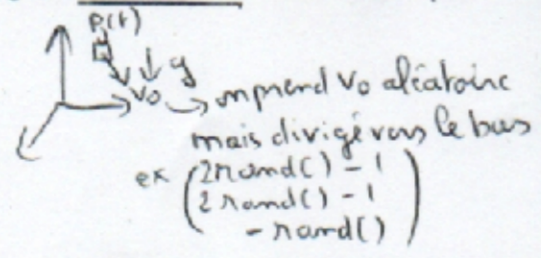 p(t)
g
v0 → on prend v0 aléatoire
mais dirigé vers le bas
ex (2rand() - 1
2rand() - 1
- rand())